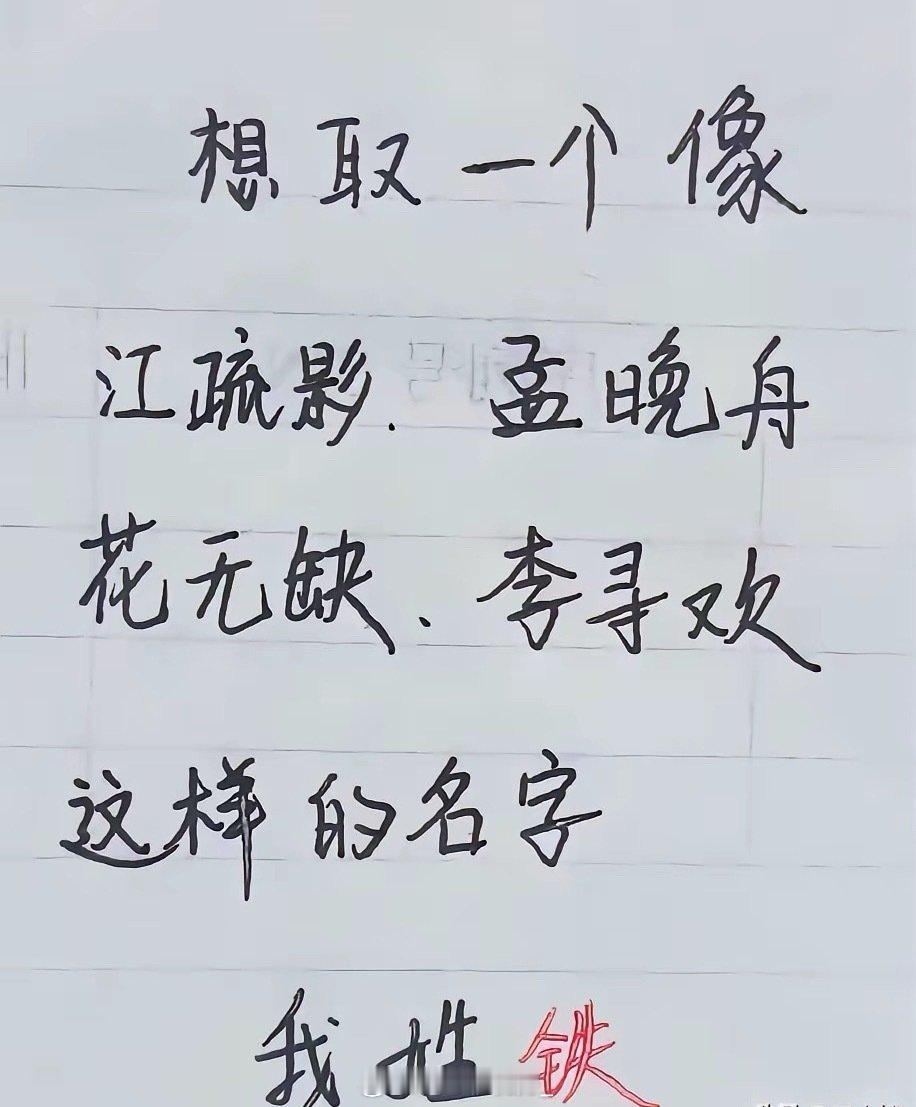 想取一个像
江疏影.孟晚舟
花无缺、李寻欢
这样的名字
我姓铁